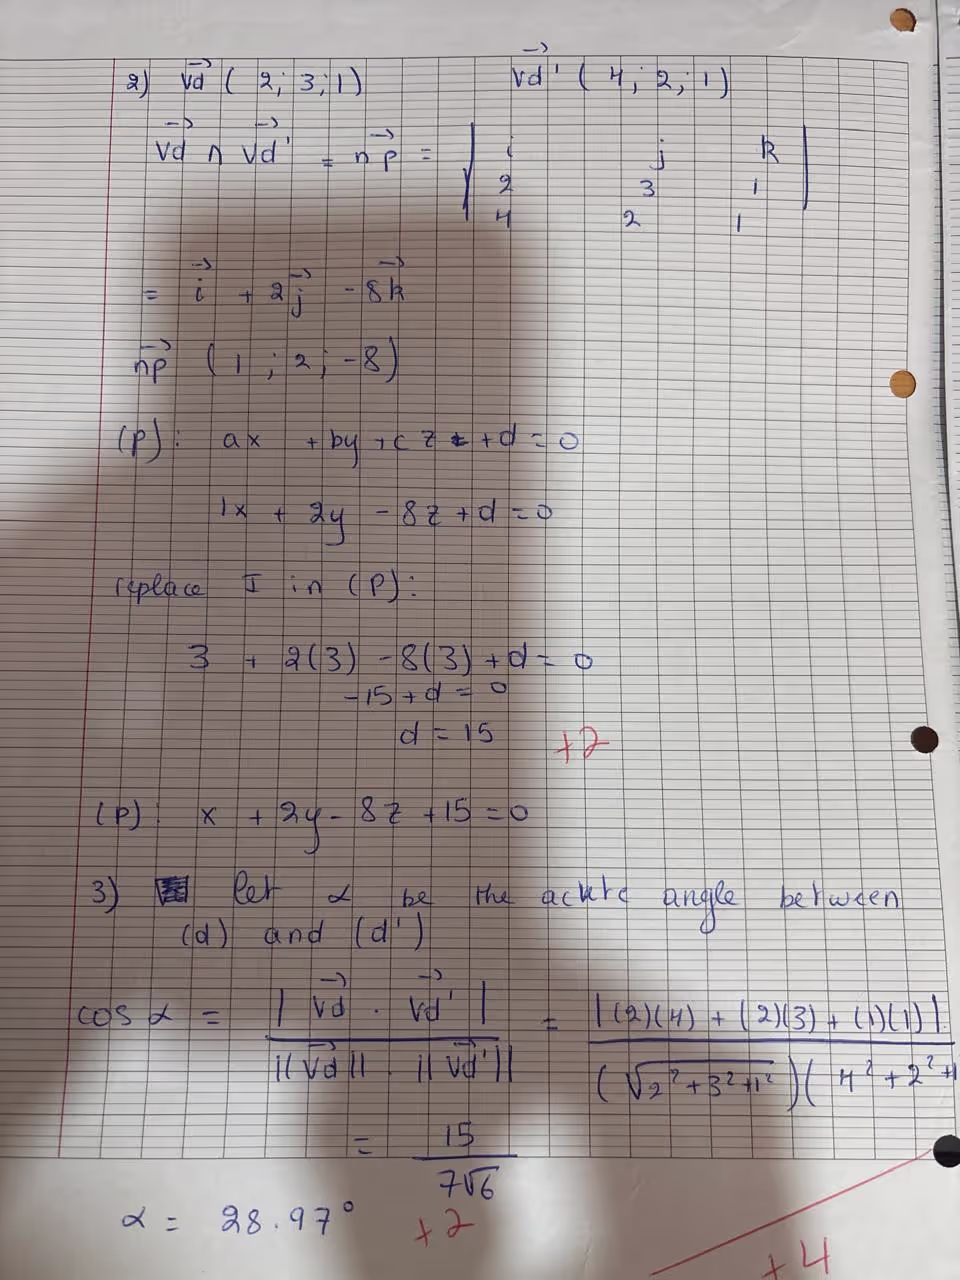 2) Vd→ ( 2; 3; 1) Vd'→ ( 4; 2; 1)
Vd→ ∧ Vd'→ = np→ = | i j k |
2 3 1
4 2 1
= i→ + 2j→ - 8k→
np→ ( 1 ; 2; -8)
(P): ax + by + cz + d = 0
1x + 2y - 8z + d = 0
replace I in (P):
3 + 2(3) - 8(3) + d = 0
-15 + d = 0
d = 15 +2
(P): x + 2y - 8z + 15 = 0
3) let α be the acute angle between
(d) and (d')
cos α = |Vd→ . Vd'→| / ||Vd→|| . ||Vd'→|| = |(2)(4) + (2)(3) + (1)(1)| / (√2² + 3² + 1²)(4² + 2² +1
= 15 / 7√6
α = 28.97° +2
+4